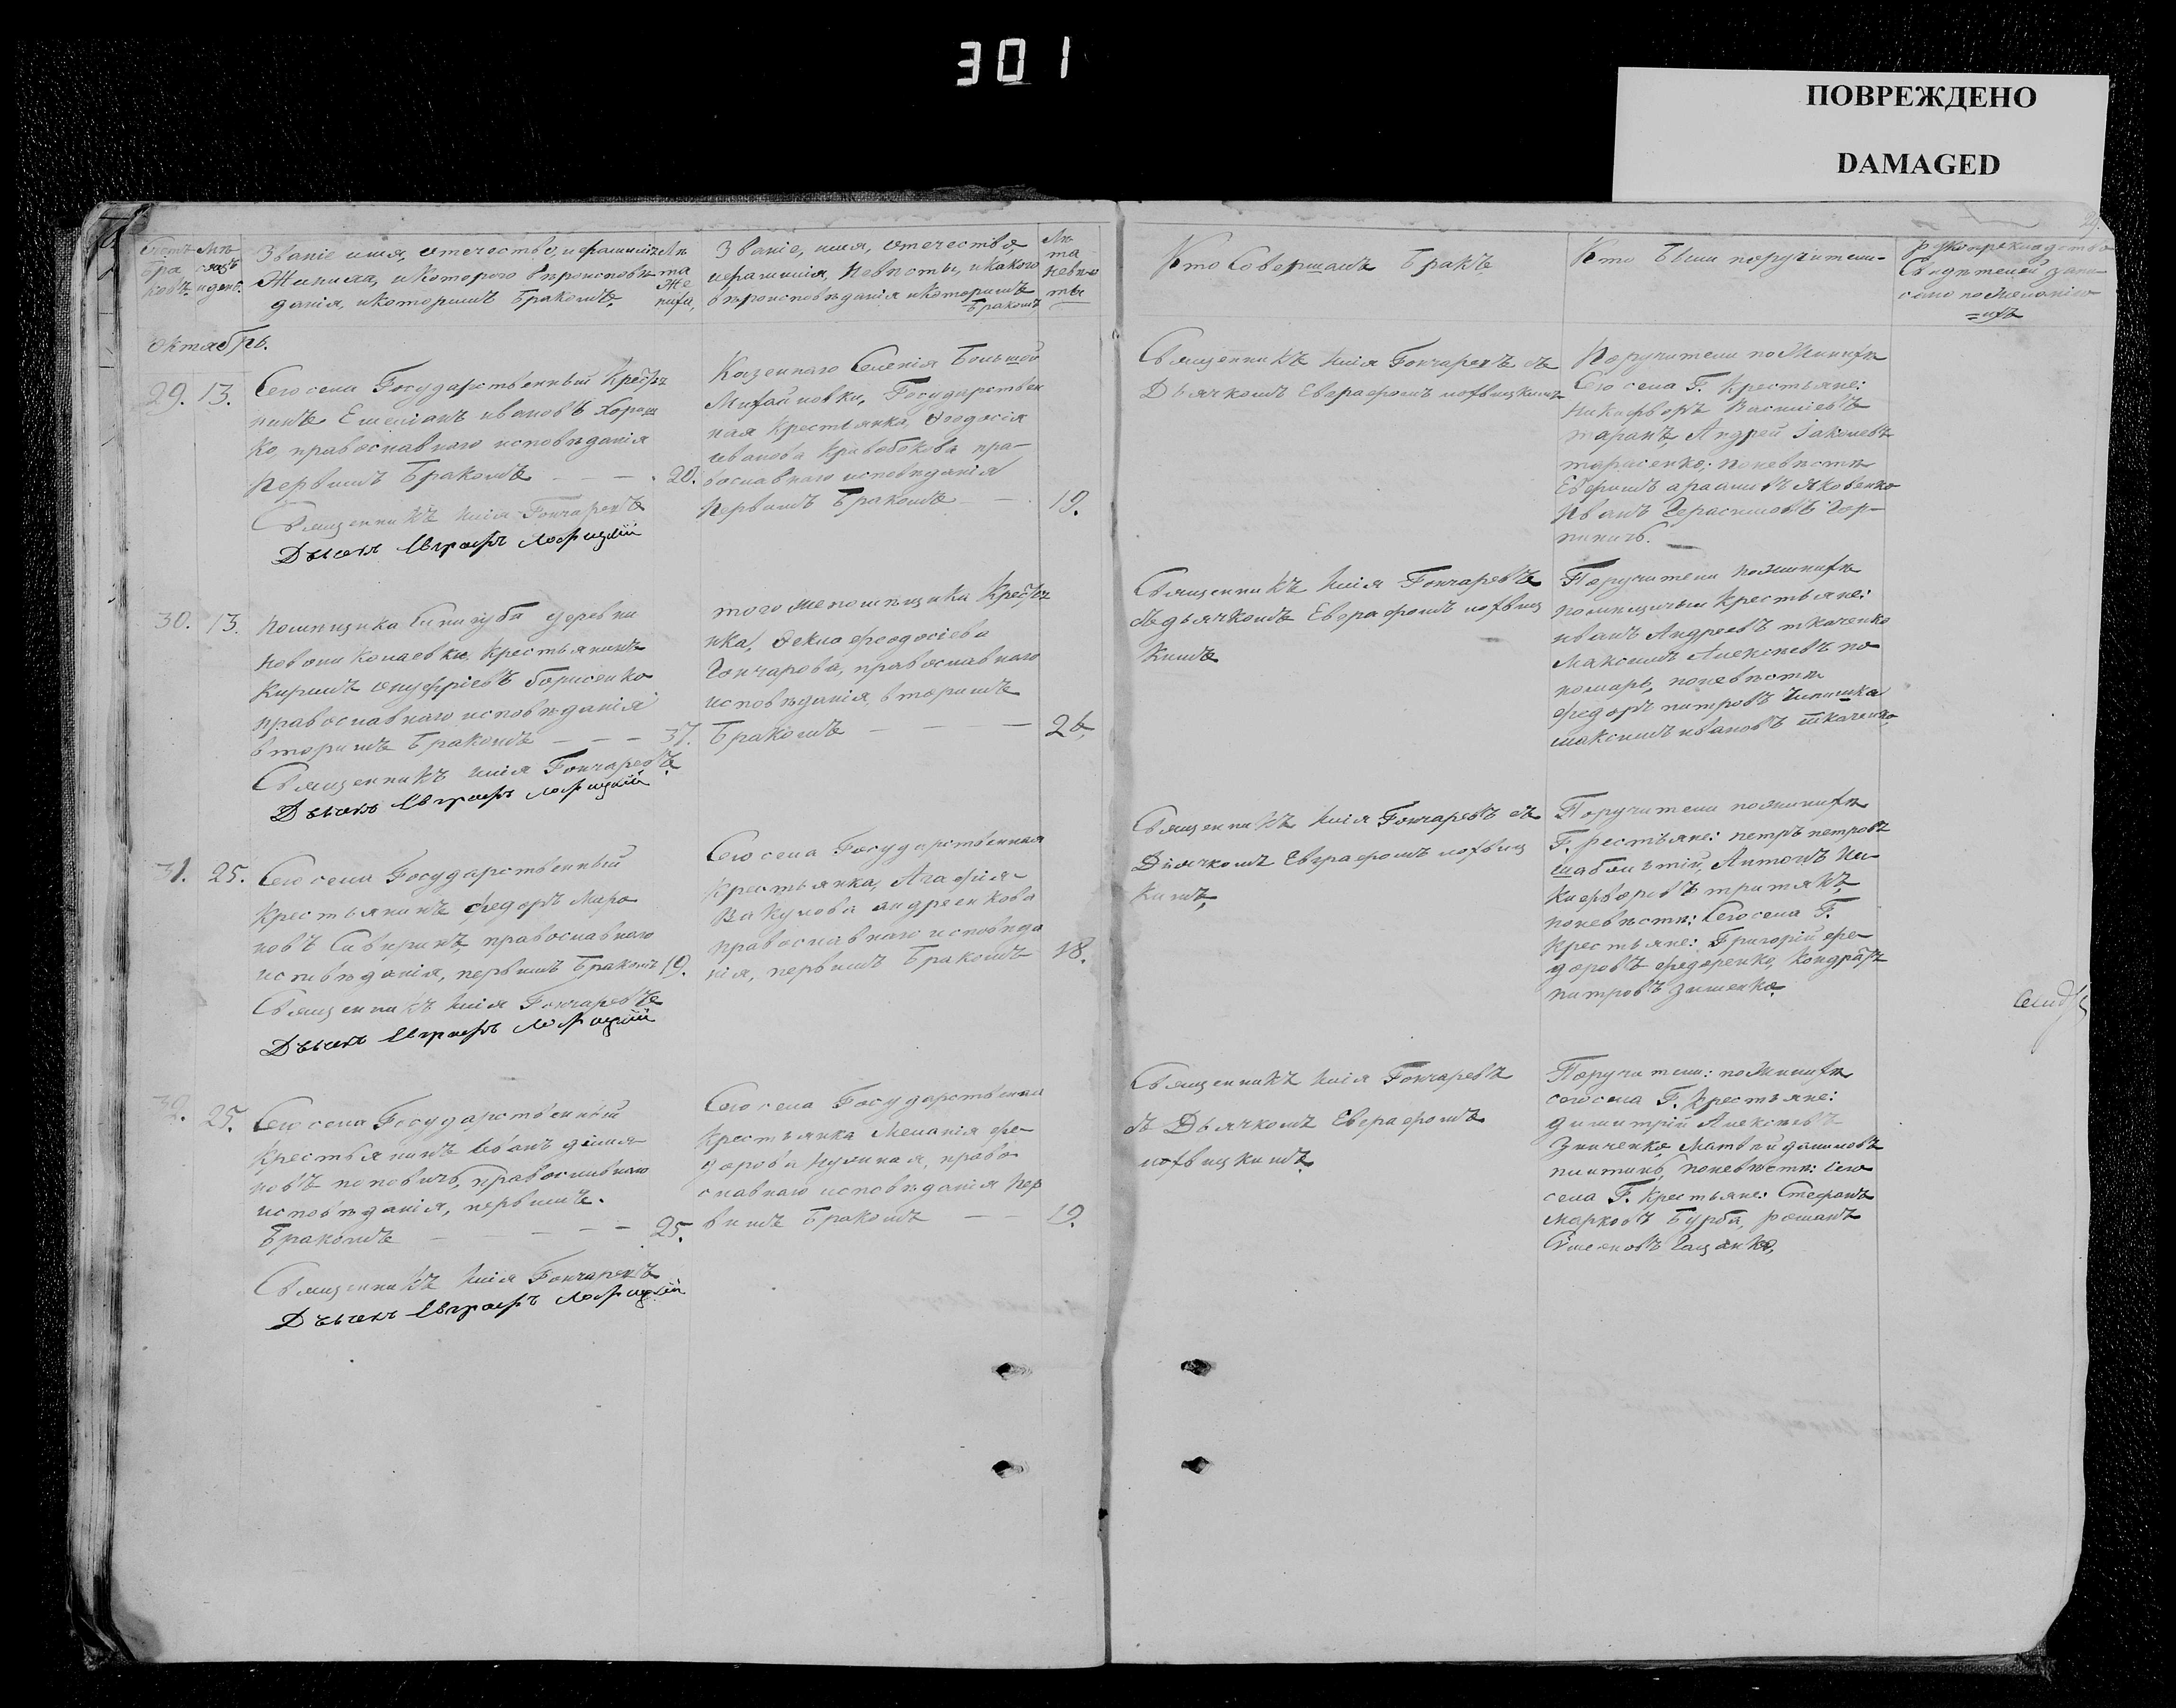 301
ПОВРЕЖДЕНО
DAMAGED
Счетъ бра ковъ
Мѣ сяцъ и день.
Званіе имя, отечество, и фамилія
Жениха, и котораго вѣроисповѣ
данія, и которимъ Бракомъ
Лѣ
та
Же
ниха,
Званіе, имя, отечество,
и фамилія, Невѣсты, и какого
вѣроисповѣданія и которимъ
Бракомъ
Лѣ
та
Невѣс
ты
Кто Совершалъ Бракъ
Кто Были поручители
Свидѣтелей запи-
сано по Желанію
=ихъ
Октябрь.
29. 13.
Сего села Государственный Крестья
нинъ Емеліанъ ивановъ Хорош
ко, православнаго исповѣданія
первымъ Бракомъ — — — 20.
Священникъ Илія Гончаревъ
Дьячекъ Евграфъ Лофицкій
Казеннаго Селенія Большой
Михайловки, Государствен
ная Крестьянка, Феодосія
иванова Кривобокова пра-
вославнаго исповѣданія
Первымъ Бракомъ — 19.
Священникъ Илія Гончаревъ съ
Дьячкомъ Евграфомъ
Поручители по Женихѣ
Сего села Г. Крестьяне:
Никифоръ Василіевъ
таранъ, Андрей Іаковлевъ
тарасенко; по невѣстѣ
Яковенко
Иванъ Герасимовъ Гор-
30. 13.
Помѣщика деревни
Крестьянинъ
Кирилъ онуфріевъ борисенко
православнаго исповѣданія
вторимъ Бракомъ — — — 37.
Священникъ Илія Гончаревъ
Дьячекъ Евграфъ Лофицкій
того же помѣщика Крестья
нка, Фекла феодосіева
Гончарова, православнаго
исповѣданія, вторимъ
Бракомъ — — — 26,
Священникъ Илія Гончаревъ
съ дьячкомъ Евграфомъ
кимъ
Поручители по Женихѣ
помѣщичьи Крестьяне:
иванъ Андреевъ ткаченко
Максимъ Алексѣевъ по
номарь, по невѣстѣ
федоръ петровъ
максимъ ивановъ ткаченко,
31. 25.
Сего села Государственный
Крестьянинъ федоръ Миро
новъ православнаго
исповѣданія, первымъ Бракомъ 19.
Священникъ Илія Гончаревъ
Дьячекъ Евграфъ Лофицкій
Сего села Государственная
Крестьянка, Агафія
Вакулова андреенкова
православнаго исповѣда
нія, первымъ Бракомъ 18.
Священникъ Илія Гончаревъ съ
Дьячкомъ Евграфомъ
кимъ,
Поручители по женихѣ
Г. рестьяне: петръ петровъ
Антонъ Ни-
кифоровъ третякъ,
по невѣстѣ: Сего села Г.
Крестьяне: Григорій фе-
доровъ федоренко, Кондратъ
петровъ
32. 25.
Сего села Государственный
Крестьянинъ Іванъ
новъ поповичъ, православнаго
исповѣданія, первымъ
Бракомъ — — — — 25.
Священникъ Илія Гончаревъ
Дьячекъ Евграфъ Лофицкій
Сего села Государственная
Крестьянка Меланія фе-
дорова право
славнаго исповѣданія пер
вымъ Бракомъ — — 19.
Священникъ Илія Гончаревъ
съ Дьячкомъ Евграфомъ
Поручители: по Женихѣ
сего села Г. Крестьяне:
димитрій Алексѣевъ
Зинченко, Матвѣй даниловъ
по невѣстѣ: Сего
села Г. Крестьяне: Стефанъ
Марковъ Бурба, романъ